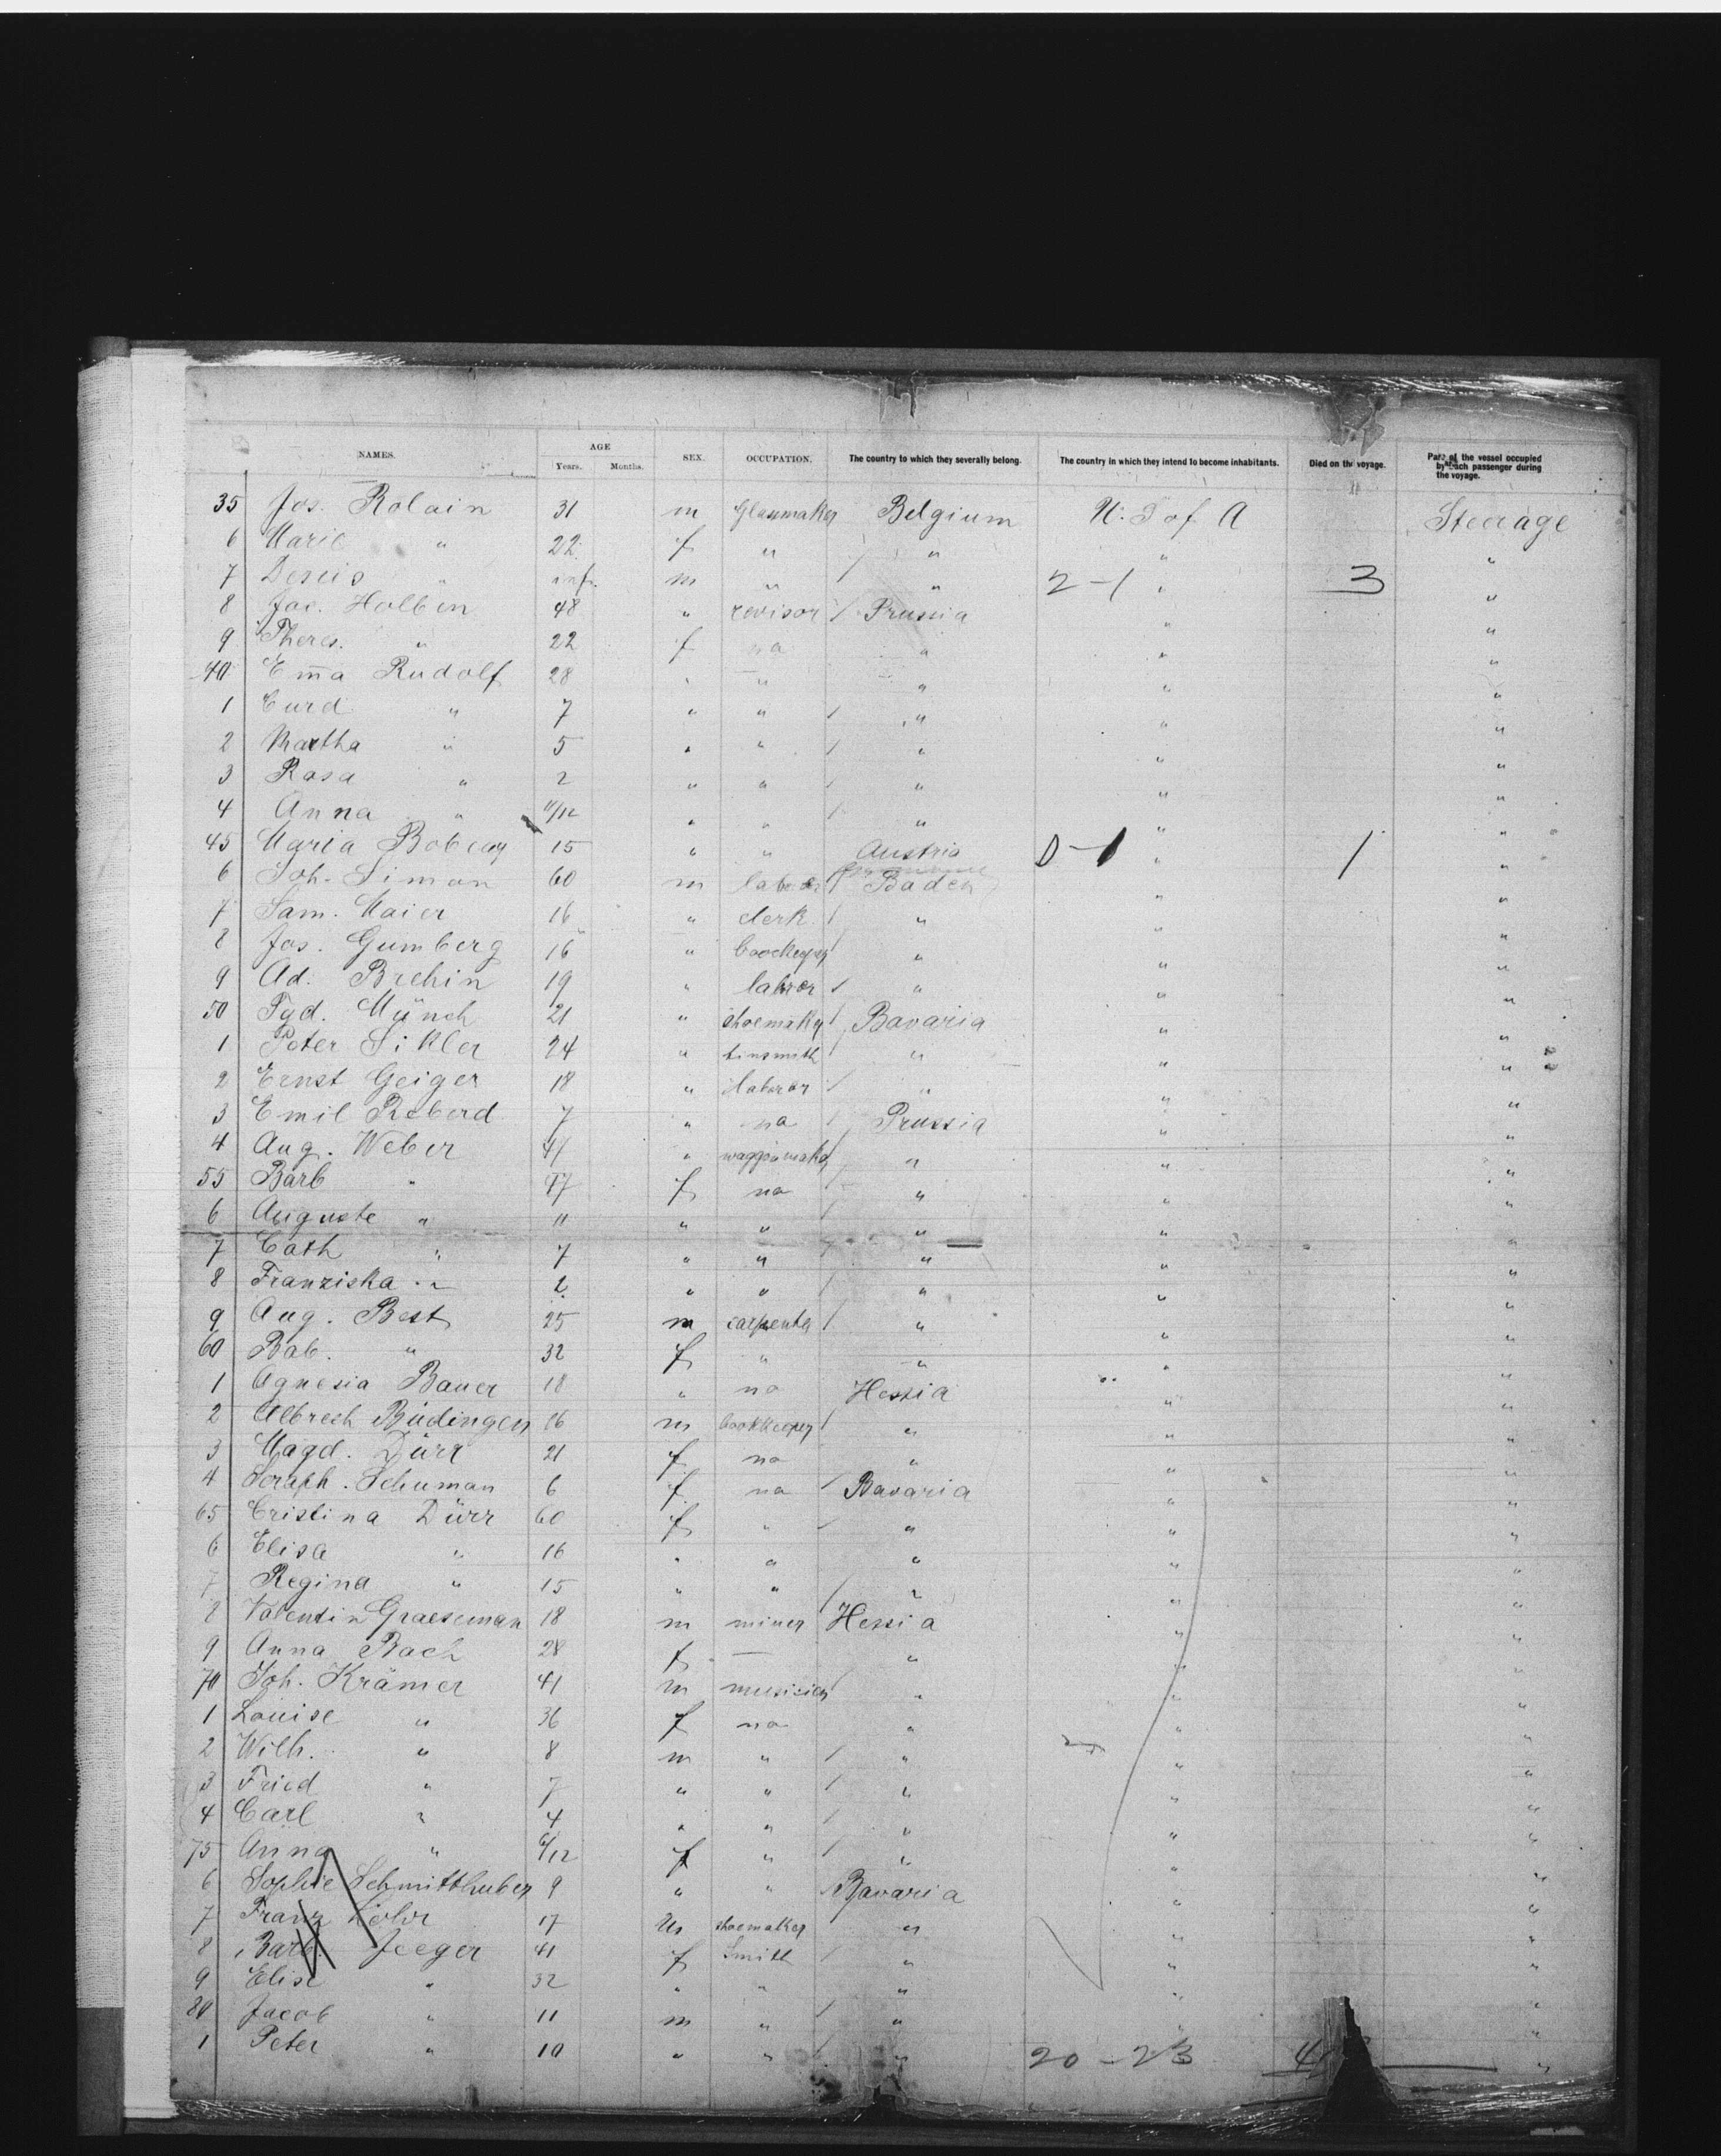 NAMES. AGE Years. Months. SEX. OCCUPATION. The country to which they severally belong. The country in which they intend to become inhabitants. Died on the voyage. Part of the vessel occupied by each passenger during the voyage.
35 Jos. Rolain 31 m Glasmaker Belgium U. S of A Steerage
6 Marie " 22 f " " " "
7 " inf. m " " 2-1 " 3 "
8 Jac. Holben 48 " revisor Prussia " "
9 Theres. " 22 f na " " "
40 Em̄a Rudolf 28 " " " " "
1 Curd " 7 " " " " "
2 Martha " 5 " " " " "
3 Rosa " 2 " " " " "
4 Anna " 11/12 " " " " "
45 Maria 15 " " Austria 0-1 " 1 "
6 Joh. Simon 60 m laborer Baden " "
7 Sam. Maier 16 " clerk " " "
8 Jos. Gumberg 16 " " " "
9 Ad. Brehin 19 " labrer " " "
50 Münch 21 " shoemaker Bavaria " "
1 Peter Sikler 24 " tinsmith " " "
2 Ernst Geiger 18 " laborer " " "
3 Emil Reberd 7 " na Prussia " "
4 Aug. Weber 41 " " " "
55 Barb " f na " " "
6 Auguste " 11 " " " " "
7 Cath " 7 " " " " "
8 Franziska " 2 " " " " "
9 Aug. Best 25 m carpenter " " "
60 Bab. " 32 f " " " "
1 Agnesia Bauer 18 " na Hessia " "
2 Albrech Büdingen 16 m bookkeeper " " "
3 Magd. Dürr 21 f na " " "
4 Seraph. Schuman 6 f na Bavaria " "
65 Cristina Dürr 60 f " " " "
6 Elisa " 16 " " " " "
7 Regina " 15 " " " " "
8 Valentin Graeseman 18 m miner Hessia " "
9 Anna Bach 28 f — " " "
70 Joh. Krämer 41 m musicien " " "
1 Louise " 36 f na " " "
2 Wilh. " 8 m " " " "
3 Fried " 7 " " " " "
4 Carl " 4 " " " " "
75 Anna " 6/12 f " " " "
6 Sophie Schmitthuber 9 " " Bavaria " "
7 Franz 17 m shoemaker " " "
8 Barb. Jeeger 41 f Smith " " "
9 Elise " 32 " " " " "
80 Jacob " 11 m " " " "
1 Peter " 10 " " " 20-23 "